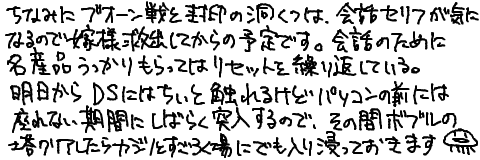 ちなみに ブオーン戦と封印の洞くつは、会話セリフが気に
なるので嫁様救出してからの予定です。会話のために
名産品うっかりもらってはリセットを繰り返している。
明日から DSにはちぃと触れるけどパソコンの前には
座れない期間にしばらく突入するので、その間ボブルの
塔クリアしたらカジノとすごろく場にでも入り浸っておきます